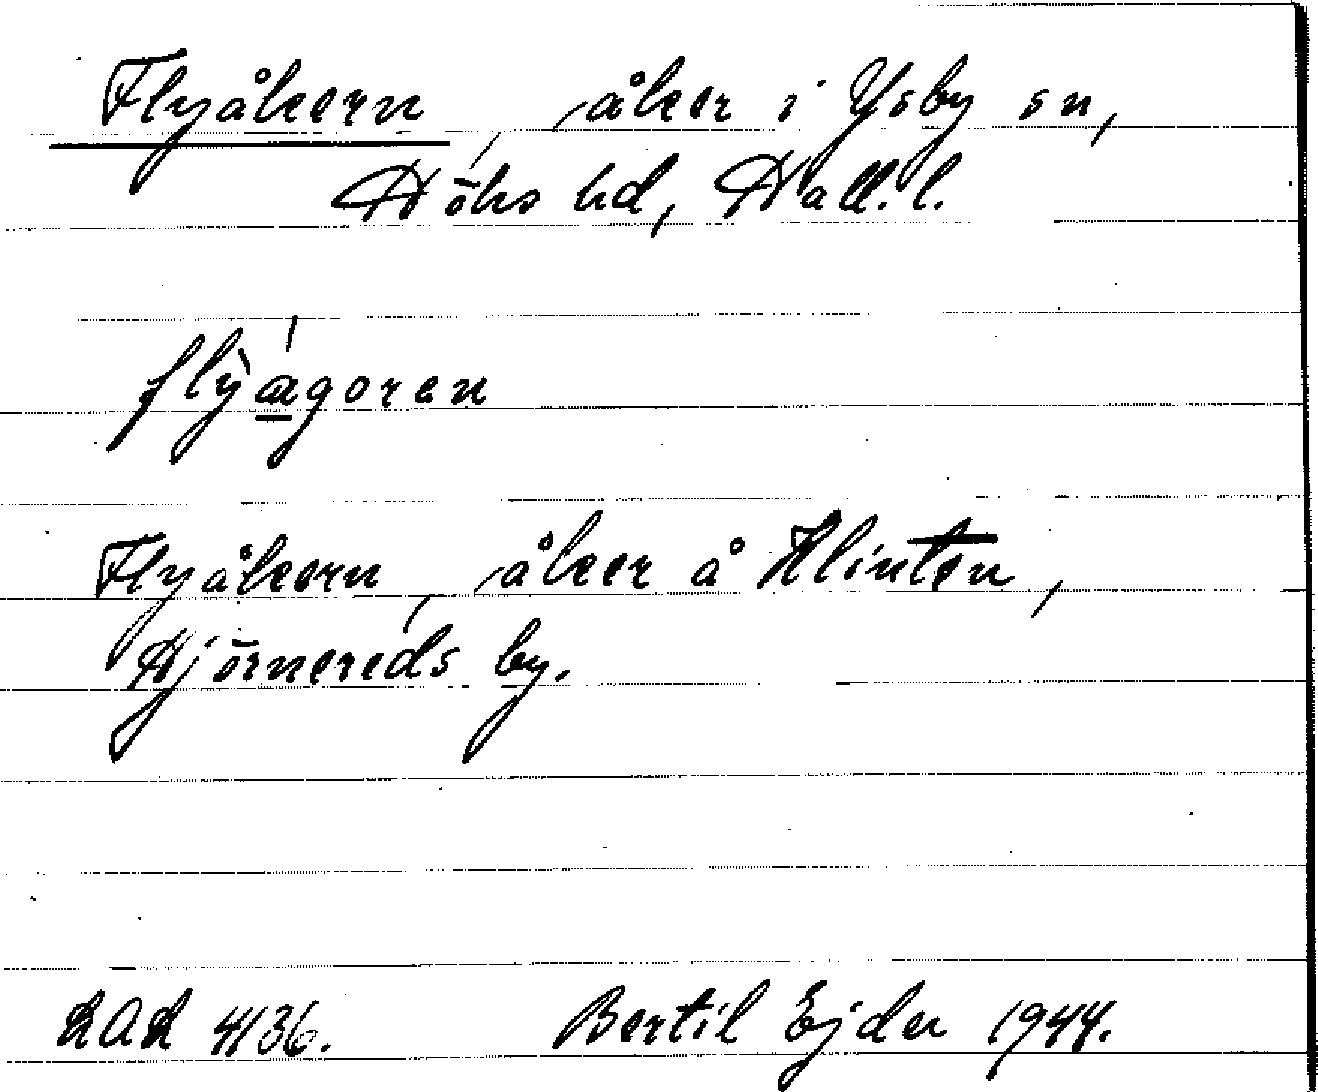 Flyåkern, åker i Ysby sn,
Höks hd, Hall. l.
flỳágoren
Flyåkern, åker å Klinten,
Hjörnereds by.
LAL 4136. Bertil Ejder 1944.